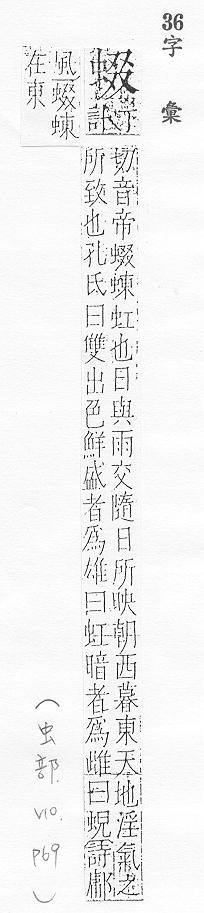 36
字彙
蝃
計
切音帝蝃蝀虹也日與雨交隨日所映朝西暮東天地淫氣之
所致也孔氏曰雙出色鮮盛者爲雄曰虹暗者爲雌曰蜺詩鄘
風蝃蝀
在東
(虫部. V10. p69)